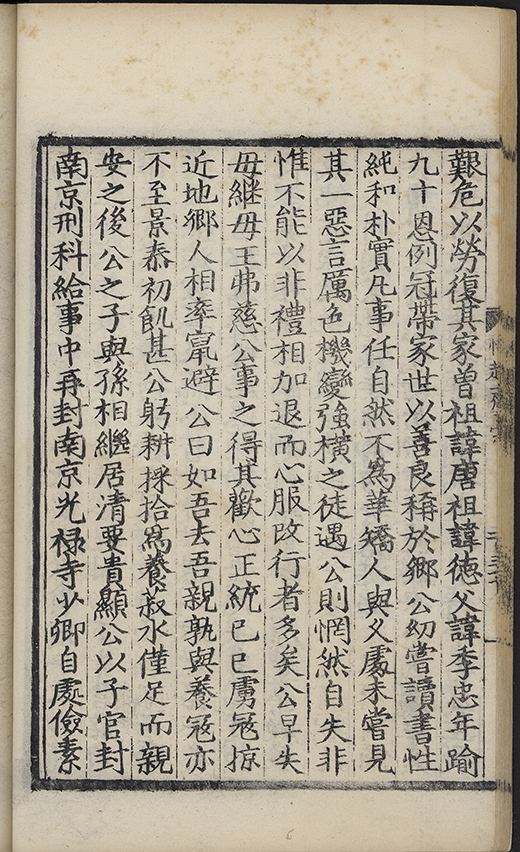 艱危以勞復其家曾祖諱唐祖諱德父諱季忠年踰
九十恩例冠帶家世以善良稱於鄉公幼嘗讀書性
純和朴實凡事任自然不爲華矯人與久處未嘗見
其一惡言厲色機變強橫之徒遇公則惘然自失非
惟不能以非禮相加退而心服改行者多矣公早失
母繼母王弗慈公事之得其歡心正統己巳虜寇掠
近地鄉人相率竄避公曰如吾去吾親孰與養寇亦
不至景泰初飢甚公躬耕採拾爲養菽水僅足而親
安之後公之子與孫相繼居清要貴顯公以子官封
南京刑科給事中再封南京光禄寺少卿自處儉素